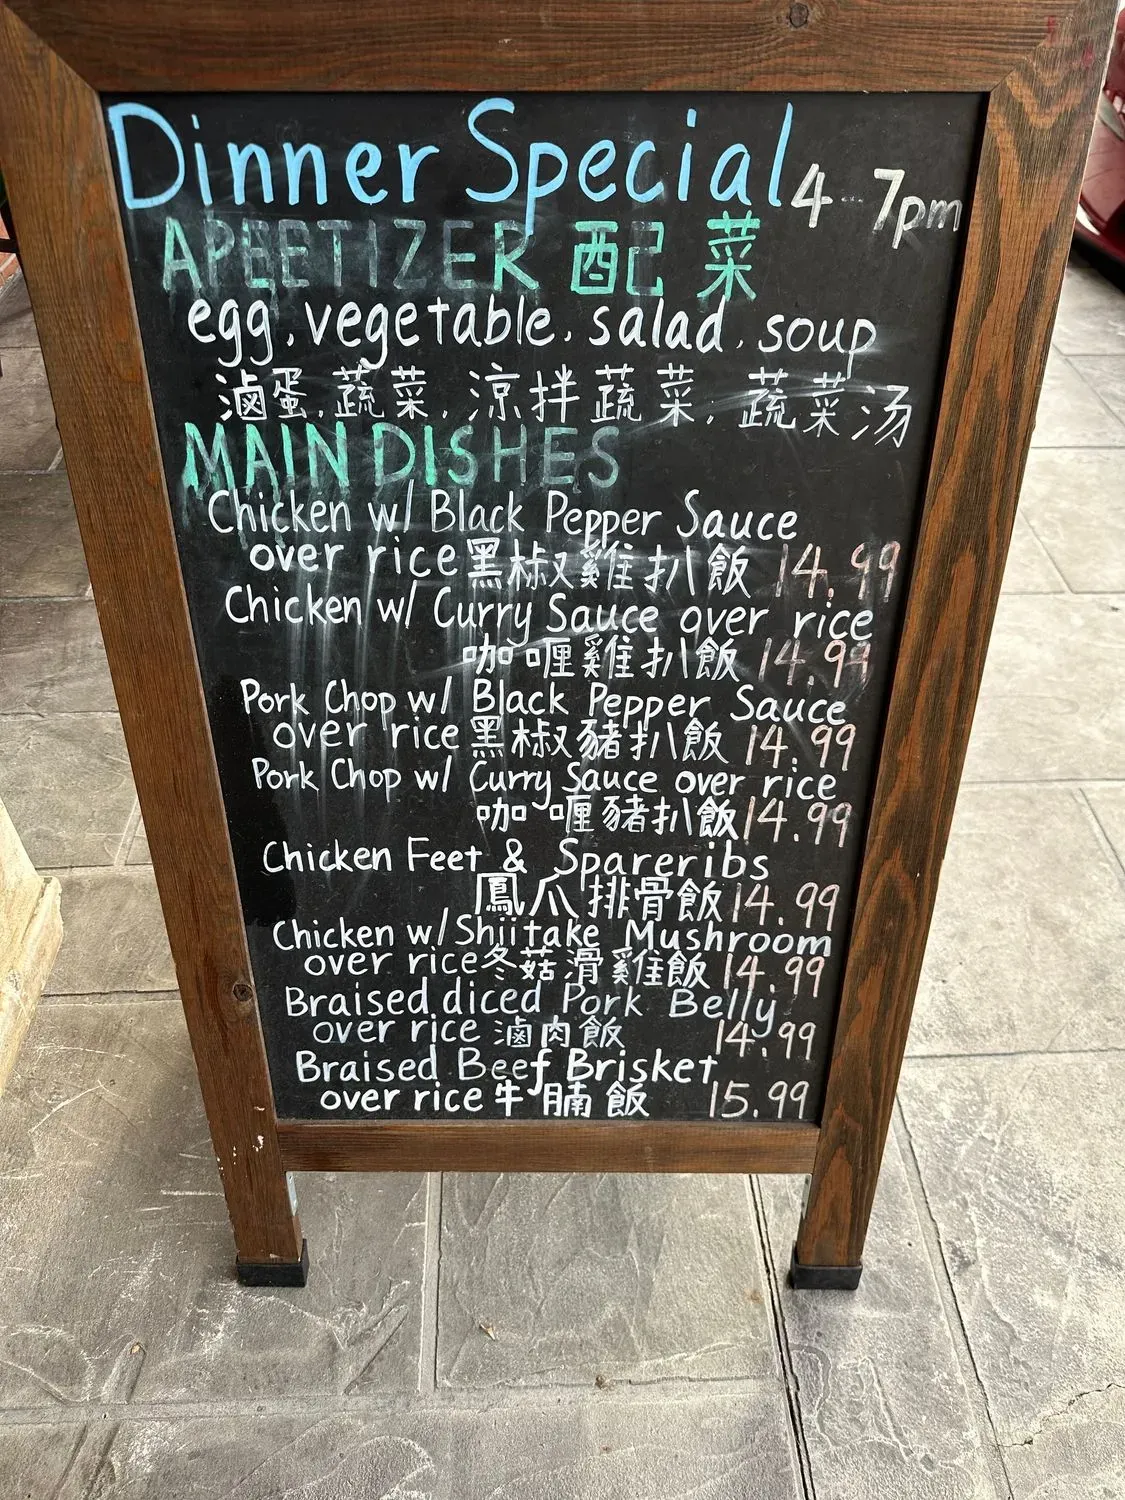 Dinner Special 4-7pm
APEETIZER 配菜
egg, vegetable, salad, soup
滷蛋, 蔬菜, 涼拌蔬菜, 蔬菜汤
MAIN DISHES
Chicken w/ Black Pepper Sauce
over rice 黑椒雞扒飯 14.99
Chicken w/ Curry Sauce over rice
咖喱雞扒飯 14.99
Pork Chop w/ Black Pepper Sauce
over rice 黑椒豬扒飯 14.99
Pork Chop w/ Curry Sauce over rice
咖喱豬扒飯 14.99
Chicken Feet & Spareribs
鳳爪排骨飯 14.99
Chicken w/ Shiitake Mushroom
over rice 冬菇滑雞飯 14.99
Braised diced Pork Belly
over rice 滷肉飯 14.99
Braised Beef Brisket
over rice 牛腩飯 15.99